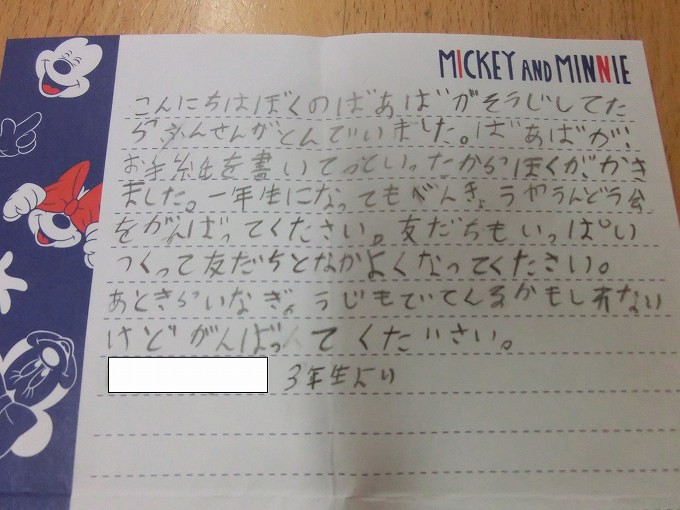 MICKEY AND MINNIE
こんにちはぼくのばあばがそうじしてた
ら ふうせんさんがとんでいました。ばあばが
お手紙を書いてっていったからぼくがかき
ました。一年生になってもべんきょうやうんどう会
をがんばってください。友だちもいっぱい
つくって友だちとなかよくなってください。
あときらいなぎょうじもでてくるかもしれない
けどがんばってください。
3年生より